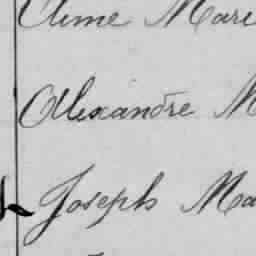 Aimé Mari
Alexandre M
Joseph Ma